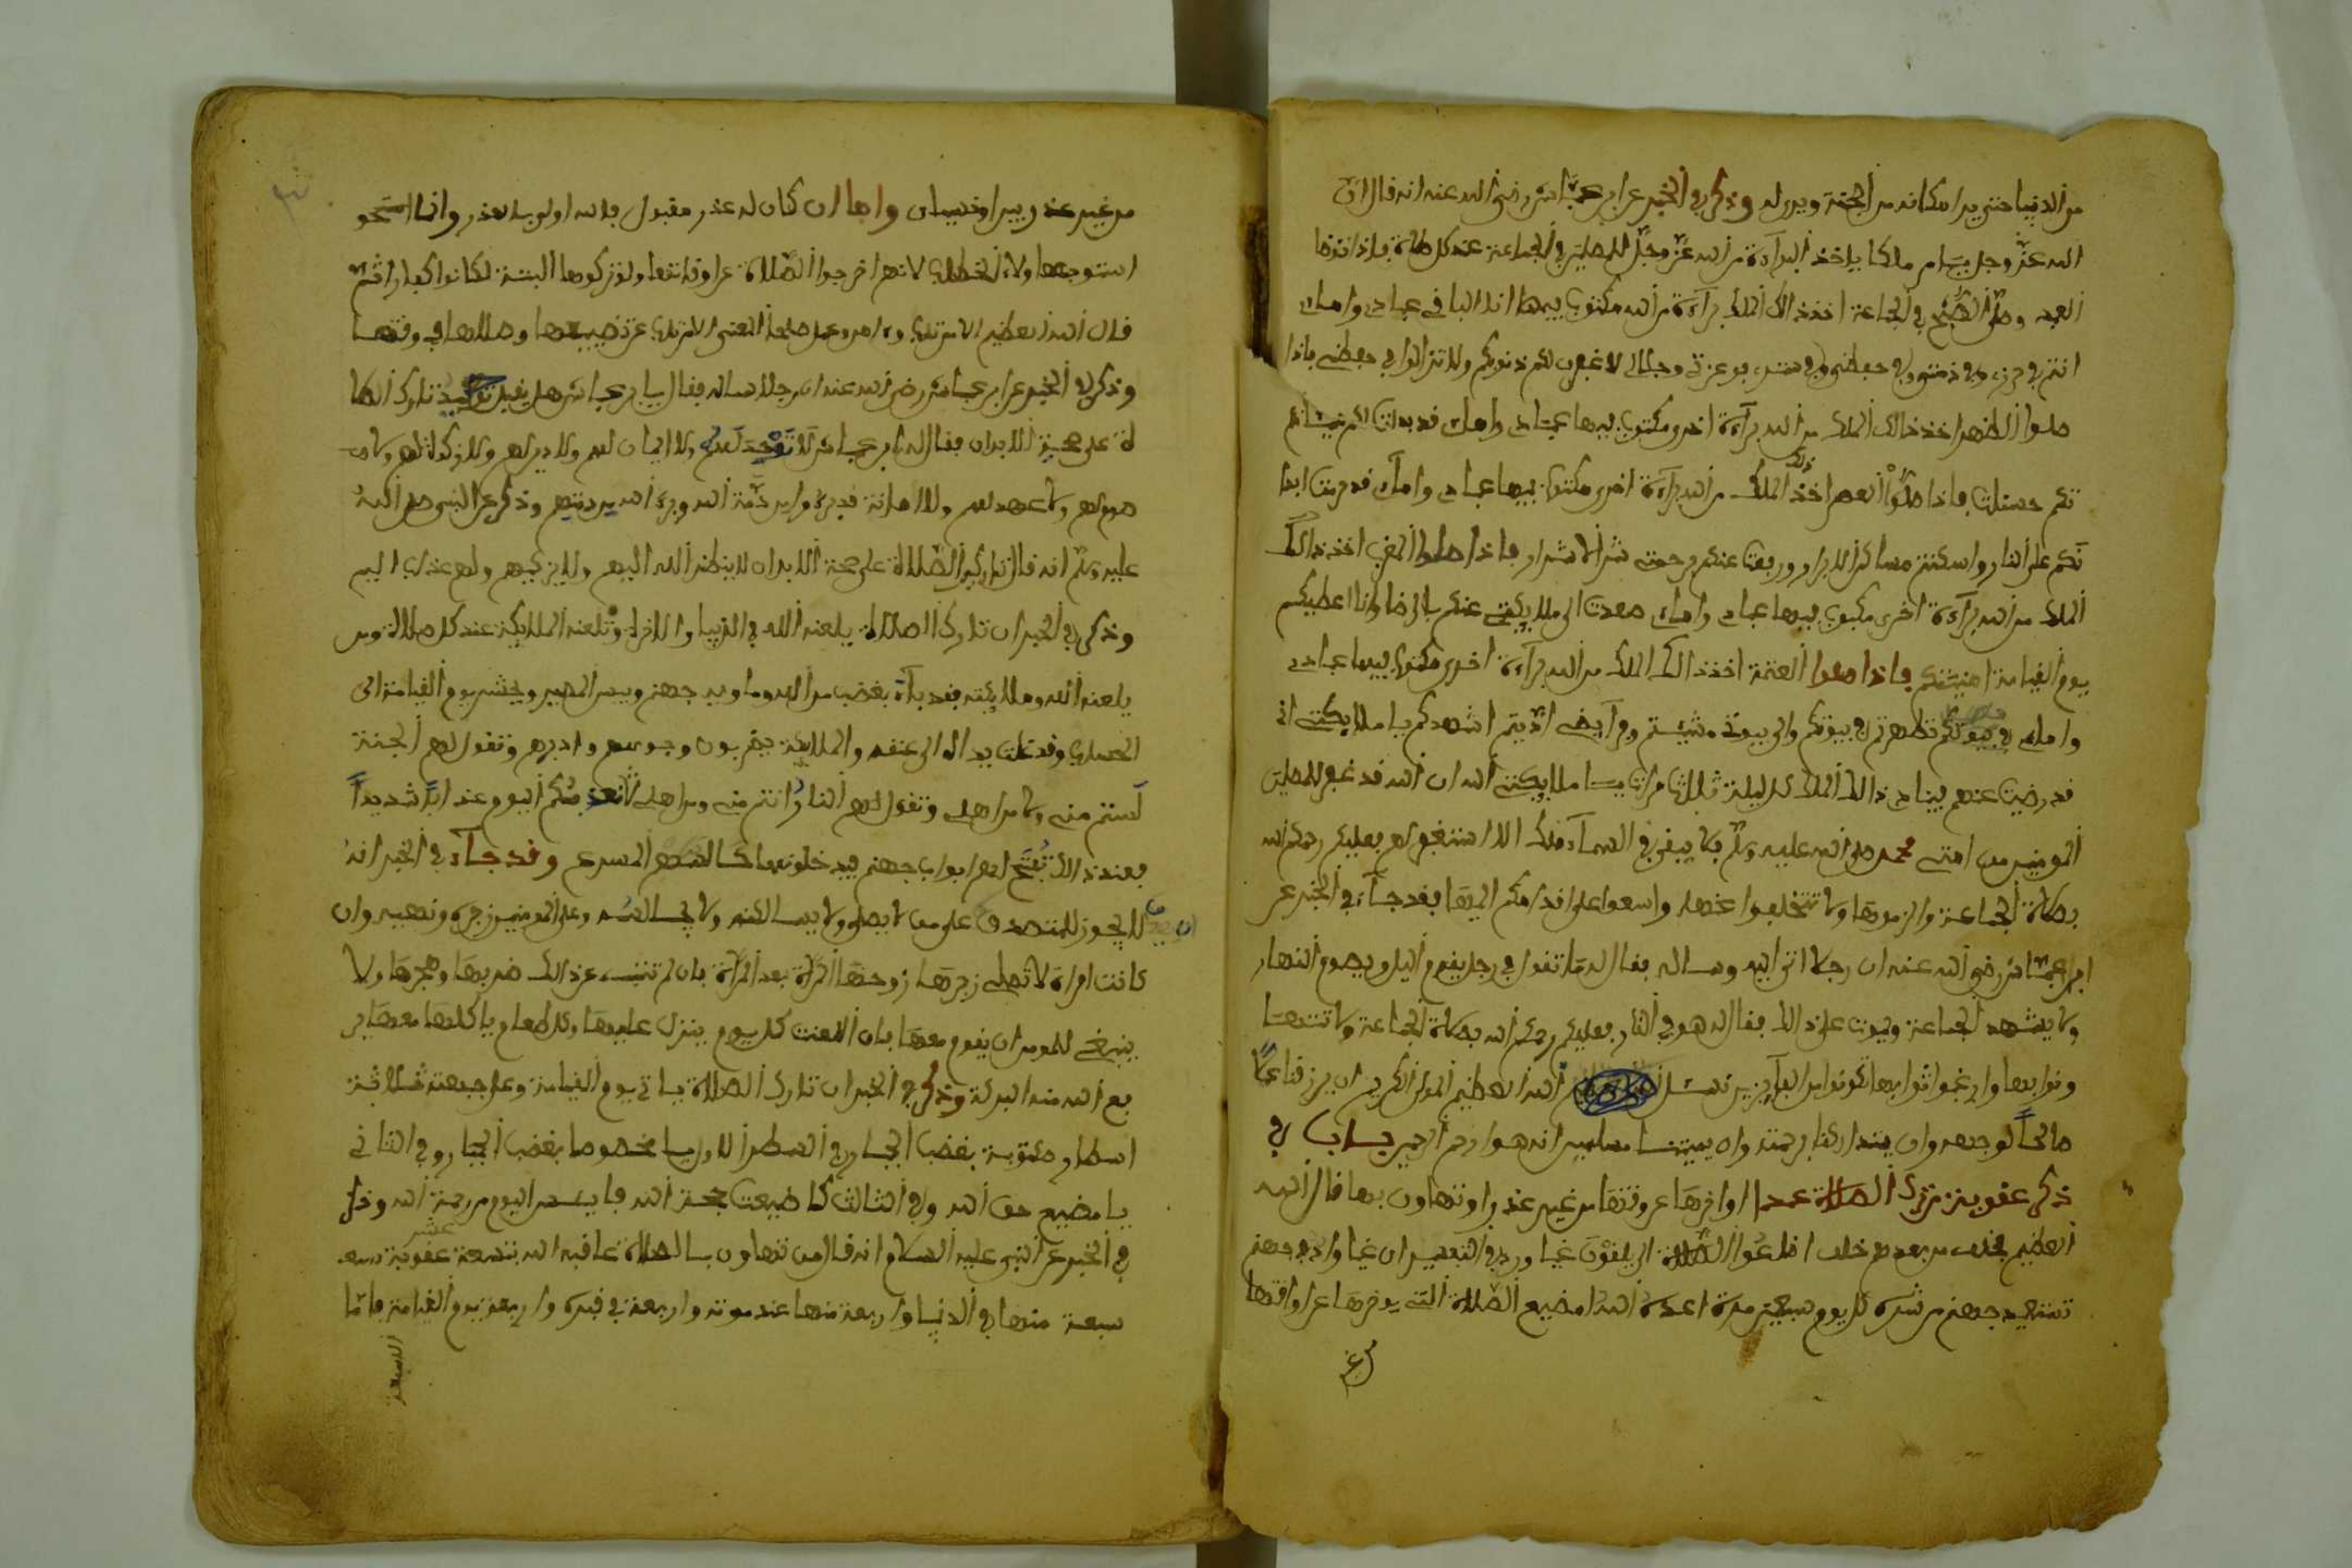 من الدنيا حتى يرا مكانه من الجنة ويدر له وذكر في الخبر عن ابن عباس رضي الله عنه انه قال ان
الله عز وجل ملكا ياخذ البراءة من الله عز وجل للمصلين في الجماعة عند كل صلاة فاذا
العبد وصلى الصبح في الجماعة اخذ ذالك الملك براءة من الله مكتوب فيها انا الله الباقي عبادي وامائي
انتم في حرزي وفي ذمتي وفي حفظي وفي ستري فوعزتي وجلالي لاغفرن لكم ذنوبكم ولا تزالوا في حفظي فاذا
صلوا الظهر اخذ ذالك الملك من الله براءة اخرى مكتوب فيها عبادي وامائي قد بدلت لكم سيئا
تكم حسنات فاذا صلوا العصر اخذ ذلك الملك من الله براءة اخرى مكتوب فيها عبادي وامائي قد حرمت ابدا
نكم على النار واسكنتم مساكن الابرار ورفعت عنكم برحمتي شر الاشرار فاذا صلوا المغرب اخذ ذالك
الملك من الله براءة اخرى مكتوب فيها عبادي وامائي صعدت الي ملايكتي عنكم بالرضا وانا اعطيكم
يوم القيامة امنيتكم فاذا صلوا العتمة اخذ ذالك الملك من الله براءة اخرى مكتوب فيها عبادي
وامائي في بيوتكم تطهرتم في بيوتكم والى بيوتي مشيتم وفرايضي اديتم اشهدكم يا ملايكتي اني
قد رضيت عنهم فينادي ذالك الملك كل ليلة ثلاث مرات يا ملايكتي الله ان الله قد غفر للمصلين
المومنين من امتي محمد صلى الله عليه وسلم فلا يبقى في السماء ملك الا استغفر لهم فعليكم رحمكم الله
بصلاة الجماعة والزموها ولا تتخلفوا عنها واسعوا على اقدامكم اليها فقد جاء في الخبر عن
ابن عباس رضي الله عنه ان رجلا اتى اليه وساله فقال له ما تقول في رجل يقوم اليل ويصوم النهار
ولا يشهد الجماعة ويموت على ذالك فقال له هو في النار فعليكم رحمكم الله بصلاة الجماعة ولا
وثوابها وارغبوا ثوابها تكونوا من الفايزين نسئل الله العظيم المولى الكريم ان يرزقنا عملا
صالحا لوجهه وان يتداركنا برحمته وان يميتنا مسلمين انه هو ارحم الرحمين باب في
ذكر عقوبة ترك الصلاة عمدا او اخرها عن وقتها من غير عذر او تهاون بها قال الله
العظيم فخلف من بعدهم خلف اضاعوا الصلاة الى يلقون غيا وروي في التفسير ان غيا واد في جهنم
تستعيذ جهنم من شره كل يوم سبعين مرة اعده الله لمضيع الصلاة التي يوخرها عن اوقاتها
من غير عذر ولا نسيان واما ان كان له عذر مقبول فالله اولى بالعذر وانما استحو
استوجبها ولاء الخطاب لانهم اخرجوا الصلاة عن اوقاتها ولو تركوها البتة لكانوا كفارا ثم
قال الله العظيم الا من تاب وءامن وعمل صالحا المعنى الا من تاب عن تضييعها وصلاها في وقتها
وذكر في الخبر عن ابن عباس رضي الله عنه ان رجلا ساله فقال يا ابن عباس هل يقبل توحيد تارك الصلا
ة على صحة الابدان فقال له ابن عباس لا توحيد لهم ولا ايمان لهم ولا دين لهم ولا زكاة لهم ولا
صوم لهم ولا عهد لهم ولا امانة قد برءوا من ذمة الله وبرئ الله من دينهم وذكر عن النبي صلى الله
عليه وسلم انه قال تارك الصلاة على صحة الابدان لا ينظر الله اليهم ولا يزكيهم ولهم عذاب اليم
وذكر في الخبر ان تارك الصلاة يلعنه الله في الدنيا والاخرة وتلعنه الملايكة عند كل صلاة ومن
يلعنه الله وملايكته فقد باء بغضب من الله وماويه جهنم وبيس المصير ويحشر يوم القيامة الى
الحساب وقد غلت يداه الى عنقه والملايكة يضربون وجوههم وادبرهم وتقول لهم الجنة
لستم مني ولا من اهلي وتقول لهم النار انتم مني ومن اهلي لاعذبنكم اليوم عذابا شديدا
فعند ذالك تفتح لهم ابواب جهنم فيدخلونها كالسهم المسرع وقد جاء في الخبر انه
لا يجوز للمتصدق على من لا يصلي ولا يسالمه ولا يجالسه وعلى المومنين زجره ونهيه وان
كانت امراة لا تصلي زجرها زوجها المرة بعد المرة فان لم تنته عن ذالك ضربها وهجرها ولا
ينبغي للمومن ان يقوم معها فان اللعنة كل يوم ينزل عليها وكل طعام ياكلها معها ير
بع الله منه البركة وذكر في الخبر ان تارك الصلاة ياتي يوم القيامة وعلى جبهته ثلاثة
اسطار مكتوبة بغضب الجبار في السطر الاول يا مخصوصا بغضب الجبار وفي الثاني
يا مضيع حق الله وفي الثالث كما ضيعت حق الله فايئس اليوم من رحمة الله وذكر
في الخبر عن النبي عليه السلام انه قال من تهاون بالصلاة عاقبه الله بتسعة عشر عقوبة
سبعة منها في الدنيا واربعة منها عند موته واربعة في قبره واربعة يوم القيامة فاما
السبعة